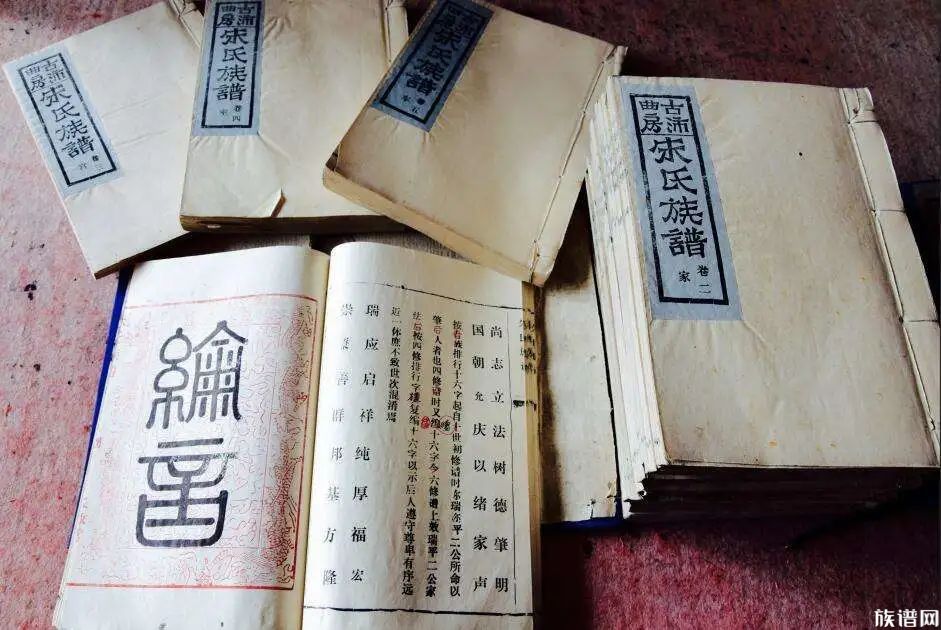 古沛
曲房
宋氏族譜
卷三
宫
古沛
曲房
宋氏族譜
卷四
古沛
曲房
宋氏族譜
古沛
曲房
宋氏族譜
卷二
家
綸音
尚志立法树德肇明
国朝允庆以绪家声
按右族排行十六字起自十世初修谱时东瑞亦平二公所命以
肇后人者也四修谱时又增十六字今六修谱上敦瑞平二公家
法后按四修排行字样复编十六字以示后人遵守尊卑有序远
近休庶不致世次混淆焉
瑞应启祥纯厚福宏
崇善群邦基方隆
族谱网